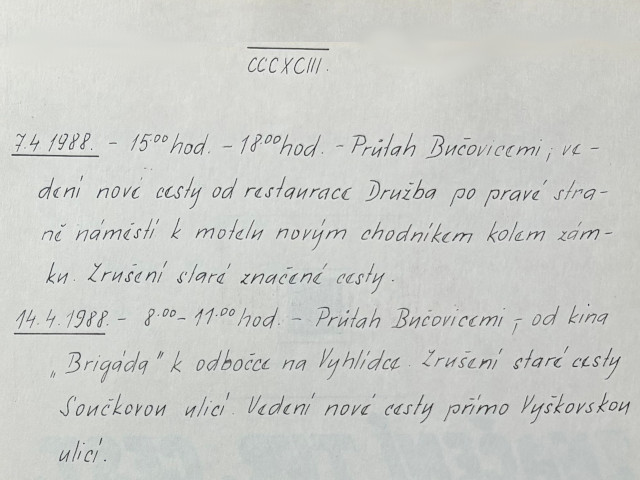 CCCXCIII.
7.4 1988. - 15.00 hod. - 18.00 hod. - Průtah Bučovicemi, ve-
dení nové cesty od restaurace Družba po pravé stra-
ně náměstí k motelu novým chodníkem kolem zám-
ku. Zrušení staré značené cesty.
14.4.1988. - 8.00 - 11.00 hod. - Průtah Bučovicemi, - od kina
„Brigáda" k odbočce na Vyhlídce. Zrušení staré cesty
Součkovou ulicí. Vedení nové cesty přímo Vyškovskou
ulicí.